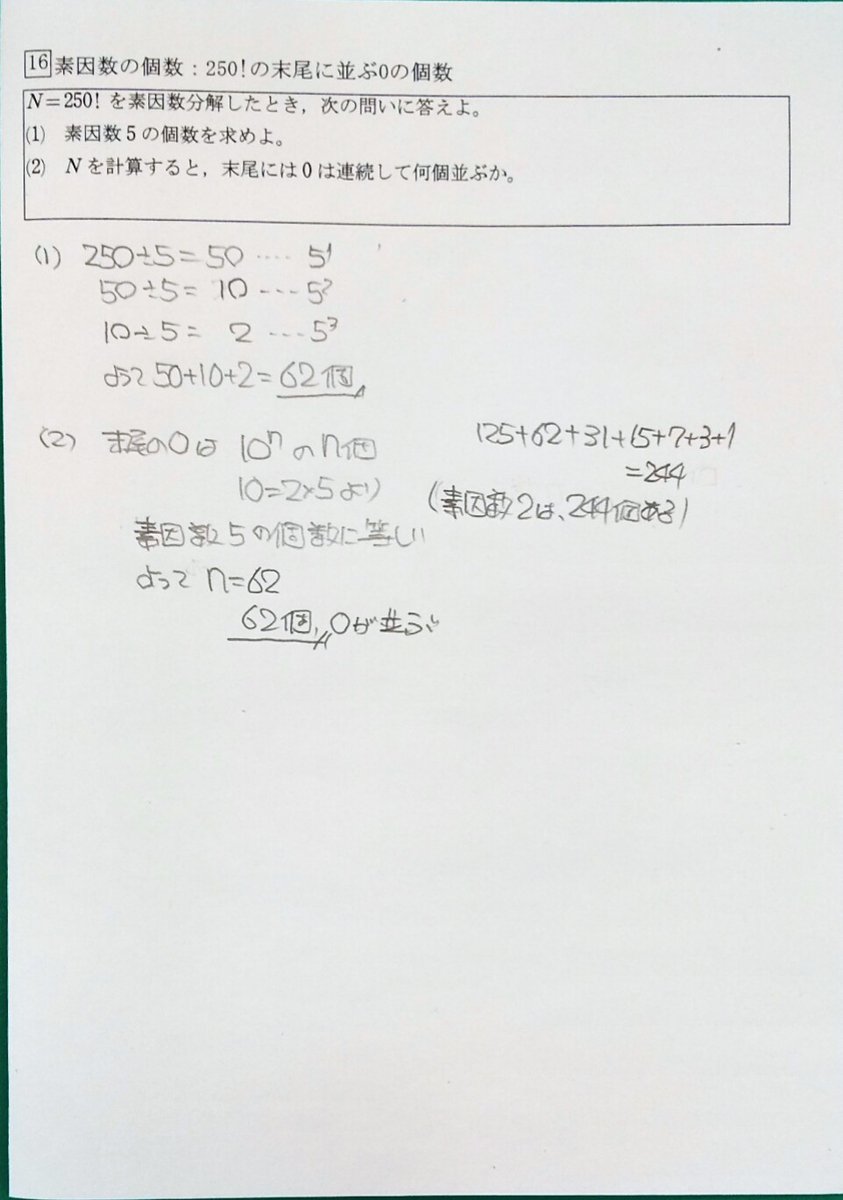 16 素因数の個数：250!の末尾に並ぶ0の個数
N=250! を素因数分解したとき，次の問いに答えよ。
(1) 素因数5の個数を求めよ。
(2) Nを計算すると，末尾には0は連続して何個並ぶか。
(1) 250÷5=50 ···· 5¹
50÷5= 10 --- 5²
10÷5= 2 --- 5³
よって 50+10+2= 62個
(2) 末尾の0は 10ⁿ の n個
10=2×5より
素因数5の個数に等しい
よって n=62
62個, 0が並ぶ
125+62+31+15+7+3+1
=244
(素因数2は、244個ある)